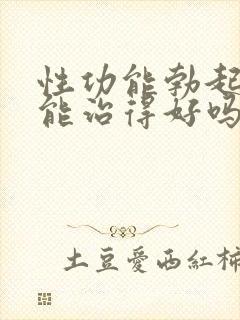 性功能勃起
能治得好吗
土豆爱西红柿